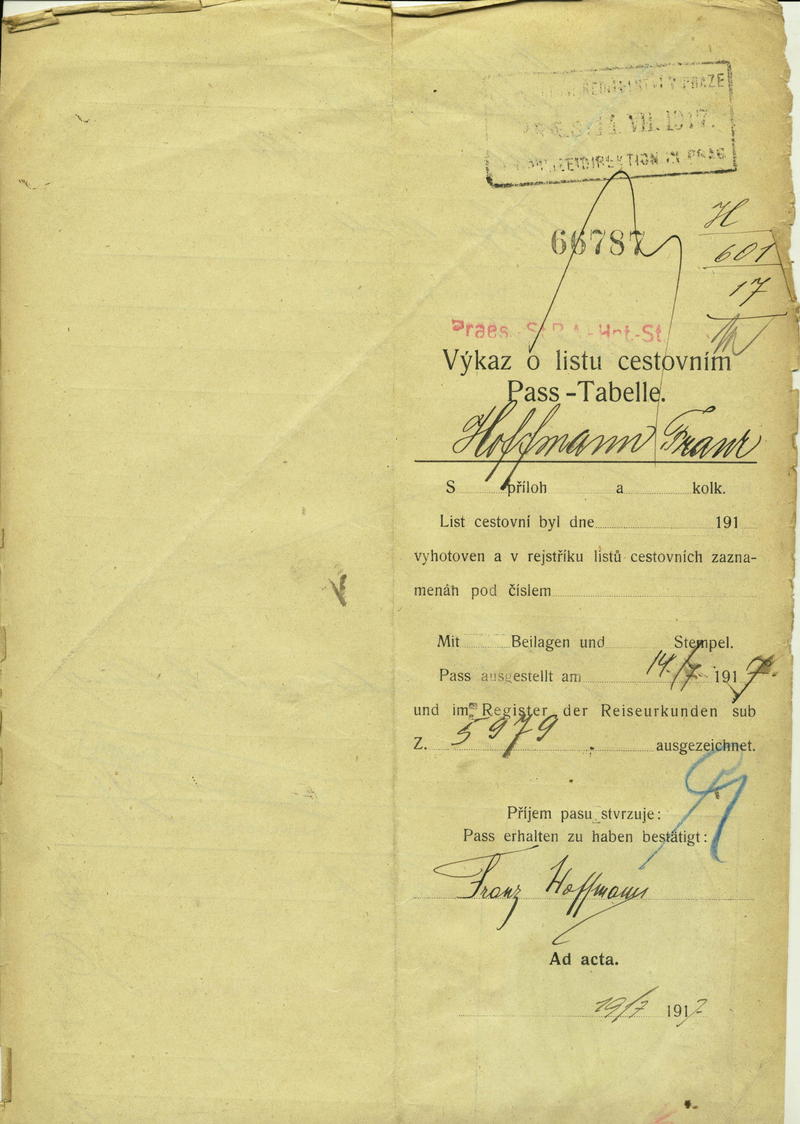 ŘEDITELSTVÍ V PRAZE
VII. 1917.
POLIZEIDIREKTION IN PRAG
66787
H
601
17
Praes.
Výkaz o listu cestovním
Pass-Tabelle.
Hoffmann Franz
S příloh a kolk.
List cestovní byl dne 191
vyhotoven a v rejstříku listů cestovních zazna-
menáh pod číslem
Mit Beilagen und Stempel.
Pass ausgestellt am 14./7. 1917.
und im Register der Reiseurkunden sub
Z. 5979 ausgezeichnet.
Příjem pasu stvrzuje:
Pass erhalten zu haben bestätigt:
Franz Hoffmann
Ad acta.
19/7 1917